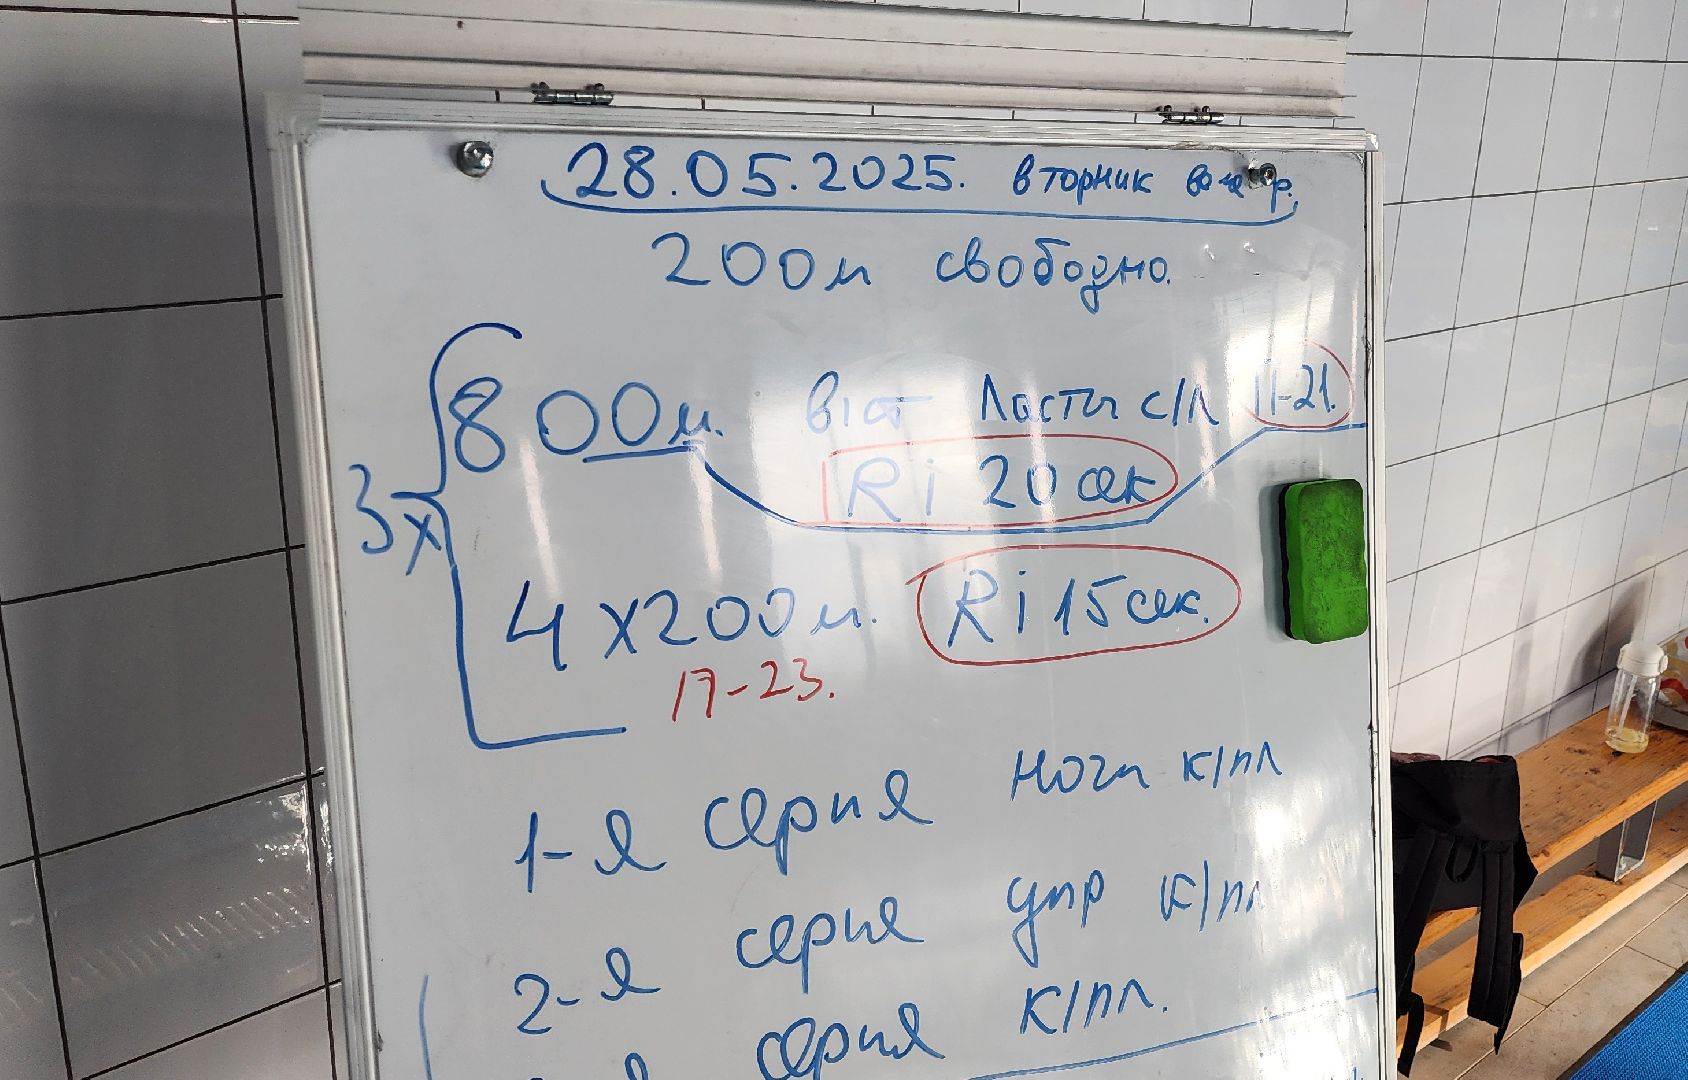 28.05.2025. вторник вечер.
200м свободно.
800м. в/ст Ласты с/л 11-21.
Ri 20 сек
3х
4х200м. Ri 15 сек.
17-23.
1-я серия ноги к/пл
2-я серия упр к/пл
серия к/пл.